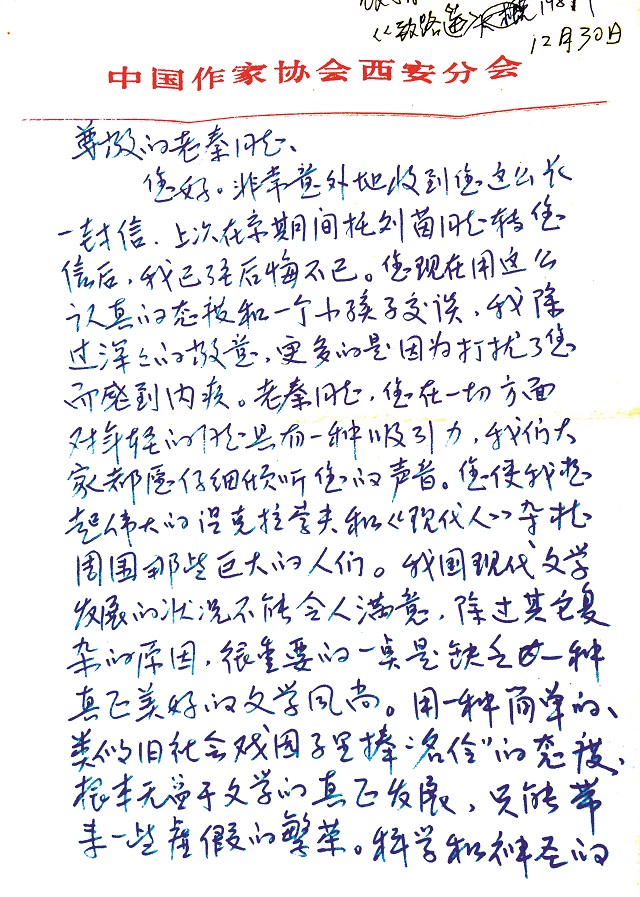 《致路遥》
12月30日
中国作家协会西安分会
尊敬的老秦同志、
您好。非常意外地收到您这么长
一封信.上次在京期间托刘茵同志转您
信后,我已经后悔不已。您现在用这么
认真的态度和一个小孩子交谈,我除
过深深的敬意,更多的是因为打扰了您
而感到内疚。老秦同志,您在一切方面
对年轻的同志具有一种吸引力,我们大
家都愿仔细倾听您的声音。您使我想
起伟大的涅克拉索夫和《现代人》杂志
周围那些巨大的人们。我国现代文学
发展的状况不能令人满意,除过其它复
杂的原因,很重要的一点是缺乏一种
真正美好的文学风尚。用一种简单的、
类似旧社会戏园子里捧“名伶”的态度、
根本无益于文学的真正发展,只能带
来一些虚假的繁荣。科学和神圣的